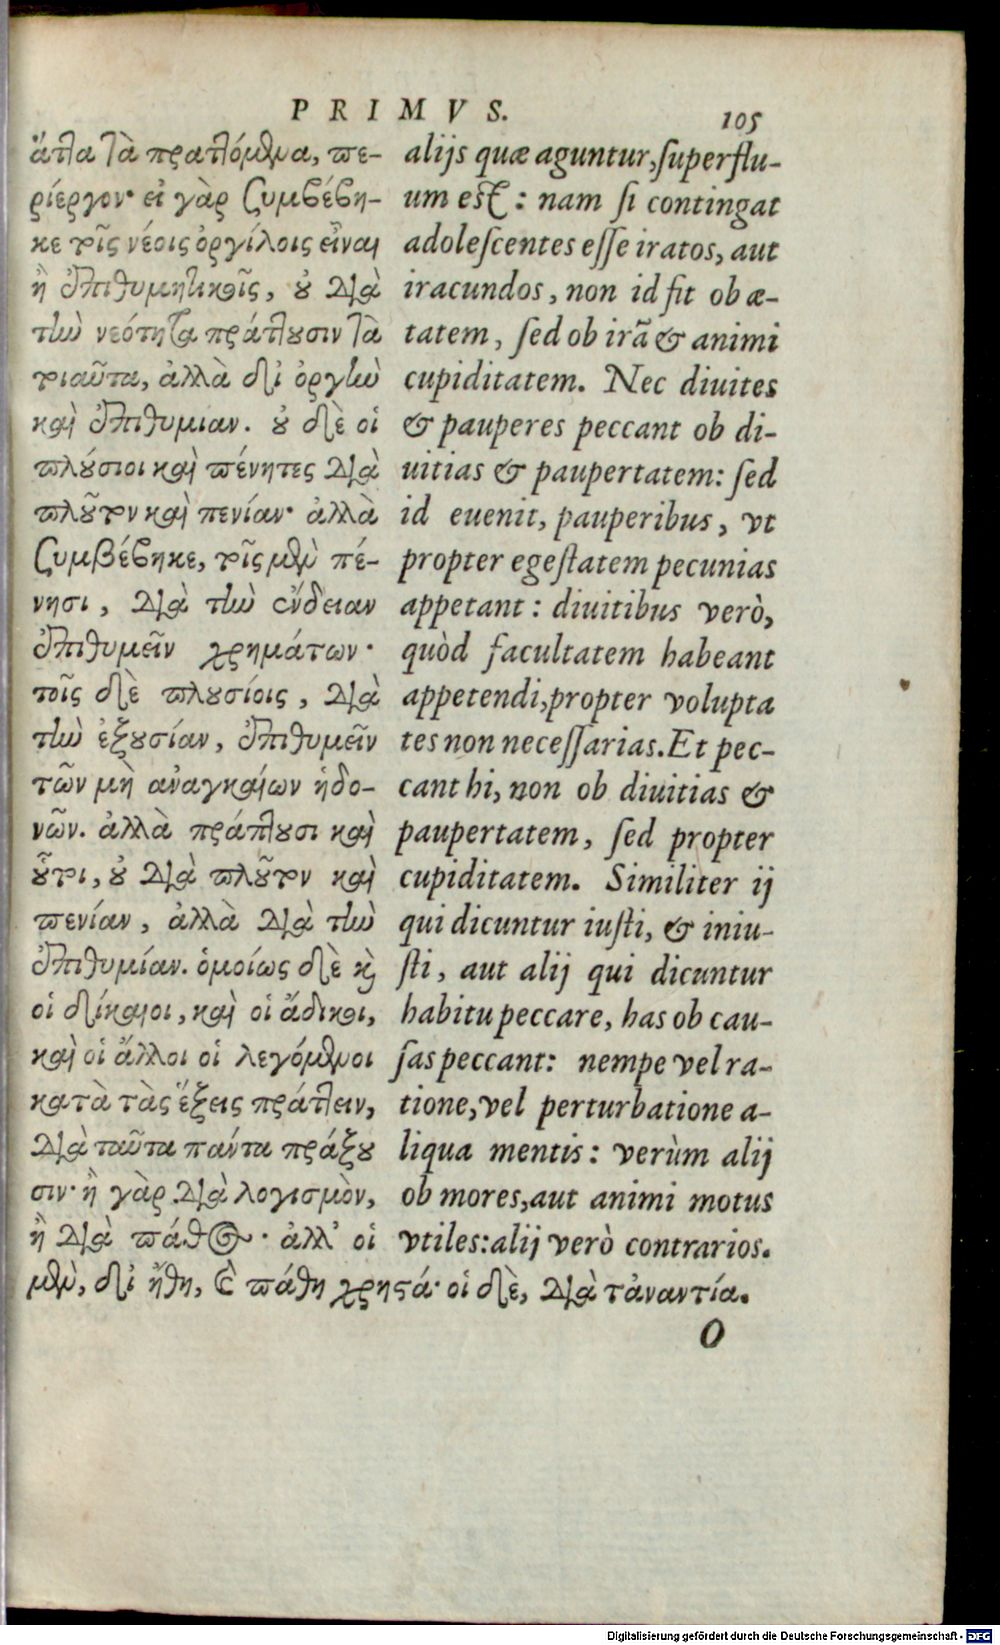 PRIMVS.
105
ἄττα τὰ πραττόμενα, πε-
ρίεργον· εἰ γὰρ συμβέβη-
κε τοῖς νέοις ὀργίλοις εἶναι
ἢ ἐπιθυμητικοῖς, οὐ διὰ
τὴν νεότητα πράττουσιν τὰ
τοιαῦτα, ἀλλὰ δι' ὀργὴν
καὶ ἐπιθυμιαν. οὐ δὲ οἱ
πλούσιοι καὶ πένητες διὰ
πλοῦτον καὶ πενίαν· ἀλλὰ
συμβέβηκε, τοῖς μὲν πέ-
νησι, διὰ τὴν ἔνδειαν
ἐπιθυμεῖν χρημάτων·
τοῖς δὲ πλουσίοις, διὰ
τὴν ἐξουσίαν, ἐπιθυμεῖν
τῶν μὴ ἀναγκαίων ἡδο-
νῶν. ἀλλὰ πράττουσι καὶ
οὗτοι, οὐ διὰ πλοῦτον καὶ
πενίαν, ἀλλὰ διὰ τὴν
ἐπιθυμίαν. ὁμοίως δὲ καὶ
οἱ δίκαιοι, καὶ οἱ ἄδικοι,
καὶ οἱ ἄλλοι οἱ λεγόμενοι
κατὰ τὰς ἕξεις πράττειν,
διὰ ταῦτα πάντα πράξου
σιν· ἢ γὰρ διὰ λογισμὸν,
ἢ διὰ πάθος· ἀλλ' οἱ
μὲν, δι' ἤθη, καὶ πάθη χρηστά· οἱ δὲ, διὰ τἀναντία.
alijs quæ aguntur, ſuperflu-
um eſt: nam ſi contingat
adoleſcentes eſſe iratos, aut
iracundos, non id fit ob æ-
tatem, ſed ob irã & animi
cupiditatem. Nec diuites
& pauperes peccant ob di-
uitias & paupertatem: ſed
id euenit, pauperibus, vt
propter egeſtatem pecunias
appetant: diuitibus verò,
quòd facultatem habeant
appetendi, propter volupta
tes non neceſſarias. Et pec-
cant hi, non ob diuitias &
paupertatem, ſed propter
cupiditatem. Similiter ij
qui dicuntur iuſti, & iniu-
ſti, aut alij qui dicuntur
habitu peccare, has ob cau-
ſas peccant: nempe vel ra-
tione, vel perturbatione a-
liqua mentis: verùm alij
ob mores, aut animi motus
vtiles: alij verò contrarios.
O
Digitalisierung gefördert durch die Deutsche Forschungsgemeinschaft - DFG